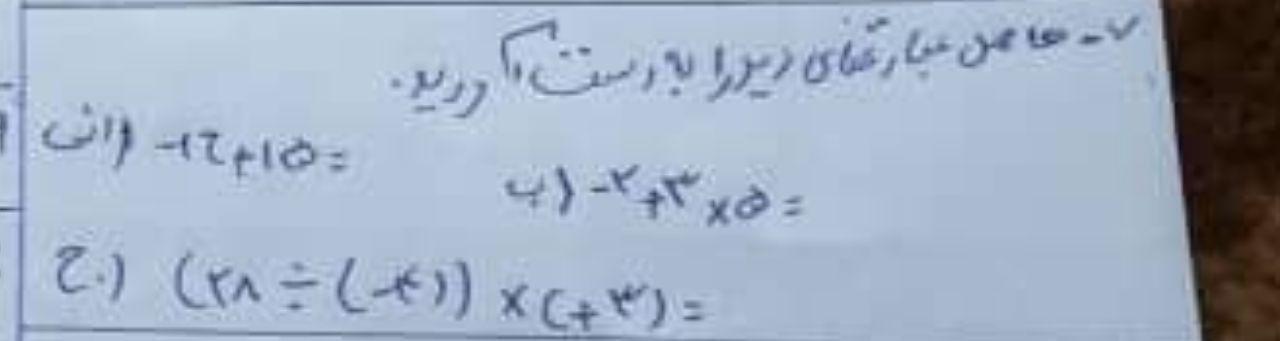 ۷- حاصل عبارتهای زیر را به دست آورید.
الف) -۱۲+۱۵=
ب) -۲+۳×۵=
ج) (۲۸÷(-۴))×(+۳)=